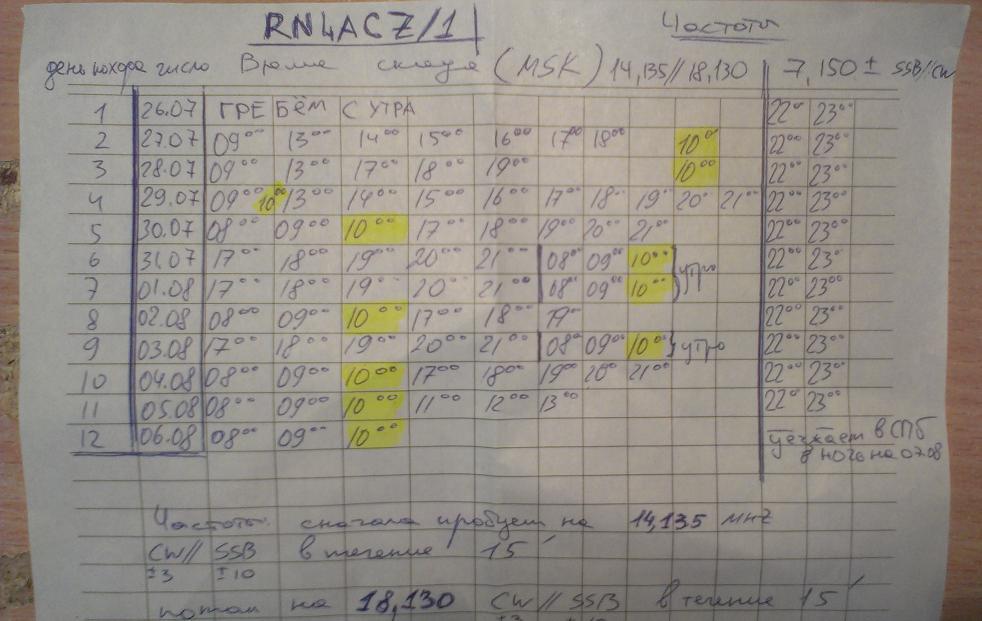 RN4ACZ/1 Частоты
день похода число Время скеда (MSK) 14,135//18,130 7,150± SSB//CW
1 26.07 ГРЕБЁМ С УТРА 22⁰⁰ 23⁰⁰
2 27.07 09⁰⁰ 13⁰⁰ 14⁰⁰ 15⁰⁰ 16⁰⁰ 17⁰⁰ 18⁰⁰ 10⁰⁰ 22⁰⁰ 23⁰⁰
3 28.07 09⁰⁰ 13⁰⁰ 17⁰⁰ 18⁰⁰ 19⁰⁰ 10⁰⁰ 22⁰⁰ 23⁰⁰
4 29.07 09⁰⁰ 10⁰⁰ 13⁰⁰ 14⁰⁰ 15⁰⁰ 16⁰⁰ 17⁰⁰ 18⁰⁰ 19⁰⁰ 20⁰⁰ 21⁰⁰ 22⁰⁰ 23⁰⁰
5 30.07 08⁰⁰ 09⁰⁰ 10⁰⁰ 17⁰⁰ 18⁰⁰ 19⁰⁰ 20⁰⁰ 21⁰⁰ 22⁰⁰ 23⁰⁰
6 31.07 17⁰⁰ 18⁰⁰ 19⁰⁰ 20⁰⁰ 21⁰⁰ 08⁰⁰ 09⁰⁰ 10⁰⁰ утро 22⁰⁰ 23⁰⁰
7 01.08 17⁰⁰ 18⁰⁰ 19⁰⁰ 20⁰⁰ 21⁰⁰ 08⁰⁰ 09⁰⁰ 10⁰⁰ 22⁰⁰ 23⁰⁰
8 02.08 08⁰⁰ 09⁰⁰ 10⁰⁰ 17⁰⁰ 18⁰⁰ 19⁰⁰ 22⁰⁰ 23⁰⁰
9 03.08 17⁰⁰ 18⁰⁰ 19⁰⁰ 20⁰⁰ 21⁰⁰ 08⁰⁰ 09⁰⁰ 10⁰⁰ утро 22⁰⁰ 23⁰⁰
10 04.08 08⁰⁰ 09⁰⁰ 10⁰⁰ 17⁰⁰ 18⁰⁰ 19⁰⁰ 20⁰⁰ 21⁰⁰ 22⁰⁰ 23⁰⁰
11 05.08 08⁰⁰ 09⁰⁰ 10⁰⁰ 11⁰⁰ 12⁰⁰ 13⁰⁰ 22⁰⁰ 23⁰⁰
12 06.08 08⁰⁰ 09⁰⁰ 10⁰⁰ уезжаем в СПб
в ночь на 07.08
Частоты сначала пробуем на 14,135 MHZ
CW// SSB в течение 15′
±3 ±10
потом на 18,130 CW // SSB в течение 15′
±3 ±10